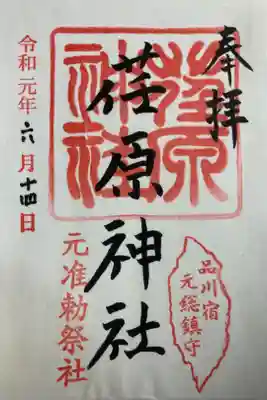 奉拝
荏原神社
荏原神社
品川宿
元総鎮守
元准勅祭社
令和元年六月十四日